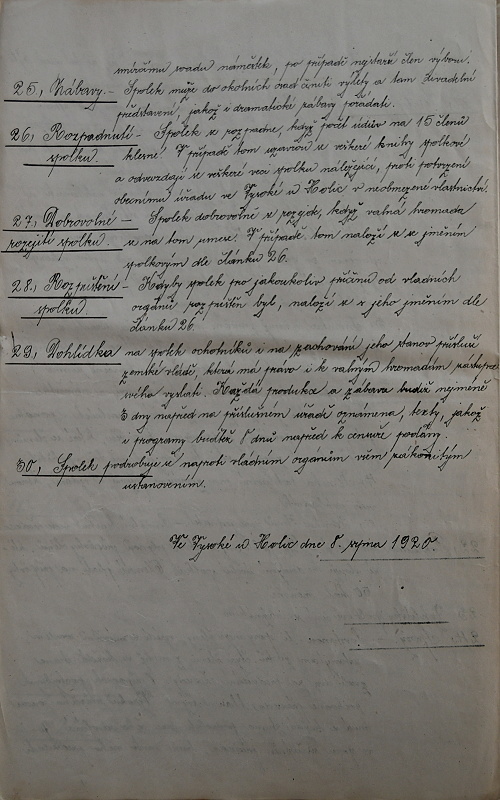 smírčímu soudu náměstek, po případě nejstarší člen výboru.
25, Zábavy. – Spolek může do okolních osad činiti výlety a tam divadelní
představení, jakož i dramatické zábavy pořádati.
26, Rozpadnutí – Spolek se rozpadne, když počet údův na 15 členů
spolku. klesne. V případě tom uzavrou se veškeré knihy spolkové
a odevzdají se veškeré věci spolku náležející, proti potvrzení
obecnímu úřadu ve Vysoké u Holic v neobmezené vlastnictví.
27, Dobrovolné – Spolek dobrovolně se rozejde, když valná hromada
rozejití spolku. se na tom usnese. V případě tom naloží se s jměním
spolkovým dle článku 26.
28, Rozpuštění – Kdyby spolek pro jakoukoliv příčinu od vládních
spolku. orgánů rozpuštěn byl, naloží se s jeho jměním dle
článku 26.
29, Dohlídka na spolek ochotníků i na zachování jeho stanov přísluší
zemské vládě, která má právo i k valným hromadám zástupce
svého vyslati. Každá produkce a zábava budiž nejméně
3 dny napřed na příslušném úřadě oznámena, texty, jakož
i programy buďtež 8 dnů napřed k censuře podány.
30, Spolek podrobuje se naproti vládním orgánům všem zákonitým
ustanovením.
Ve Vysoké u Holic dne 8. října 1920.